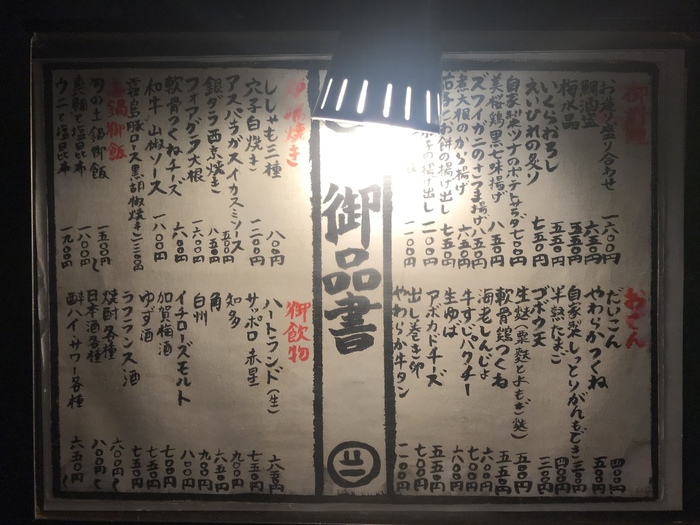 お造り盛り合わせ 一六〇〇円
鯛酒盗 六五〇円
梅水晶 五五〇円
いくらおろし 五五〇円
えいひれの炙り 七五〇円
自家製ツナのポテトサラダ 七〇〇円
美桜鶏黒七味揚げ 八五〇円
ズワイガニのさつま揚げ 八五〇円
煮大根のから揚げ 七五〇円
お餅の揚げ出し
おでん
だいこん 四〇〇円
やわらかつくね 五〇〇円
自家製しっとりがんもどき 三五〇円
半熟たまご 四〇〇円
ゴボウ天 三〇〇円
生麩(粟麩とよもぎ麩) 五〇〇円
軟骨鶏つくね 五五〇円
海老しんじょ 六五〇円
牛すじパクチー 七〇〇円
生ゆば 六〇〇円
アボカドチーズ 五五〇円
出し巻き卵 七〇〇円
やわらか牛タン 一一〇〇円
御品書
焼き
ししゃも三種 八〇〇円
穴子白焼き 一二〇〇円
アスパラガスイカスミソース 五〇〇円
銀ダラ西京焼き 八五〇円
フォアグラ大根 一六〇〇円
軟骨つくねチーズ 六〇〇円
和牛 山椒ソース 一八〇〇円
霧島豚ロース黒胡椒焼き 一三〇〇円
土鍋御飯
旬の土鍋御飯 一五〇〇円〜
真鯛で塩昆布 一八〇〇円
ウニで塩昆布 一九〇〇円
御飲物
ハートランド(生) 六五〇円
サッポロ赤星 七五〇円
知多 九〇〇円
角 六五〇円
白州
イチローズモルト
加賀梅酒 七〇〇円
ゆず酒 七五〇円
ラフランス酒 七五〇円
焼酎各種 六〇〇円〜
日本酒各種 八〇〇円〜
酎ハイサワー各種 六五〇円〜